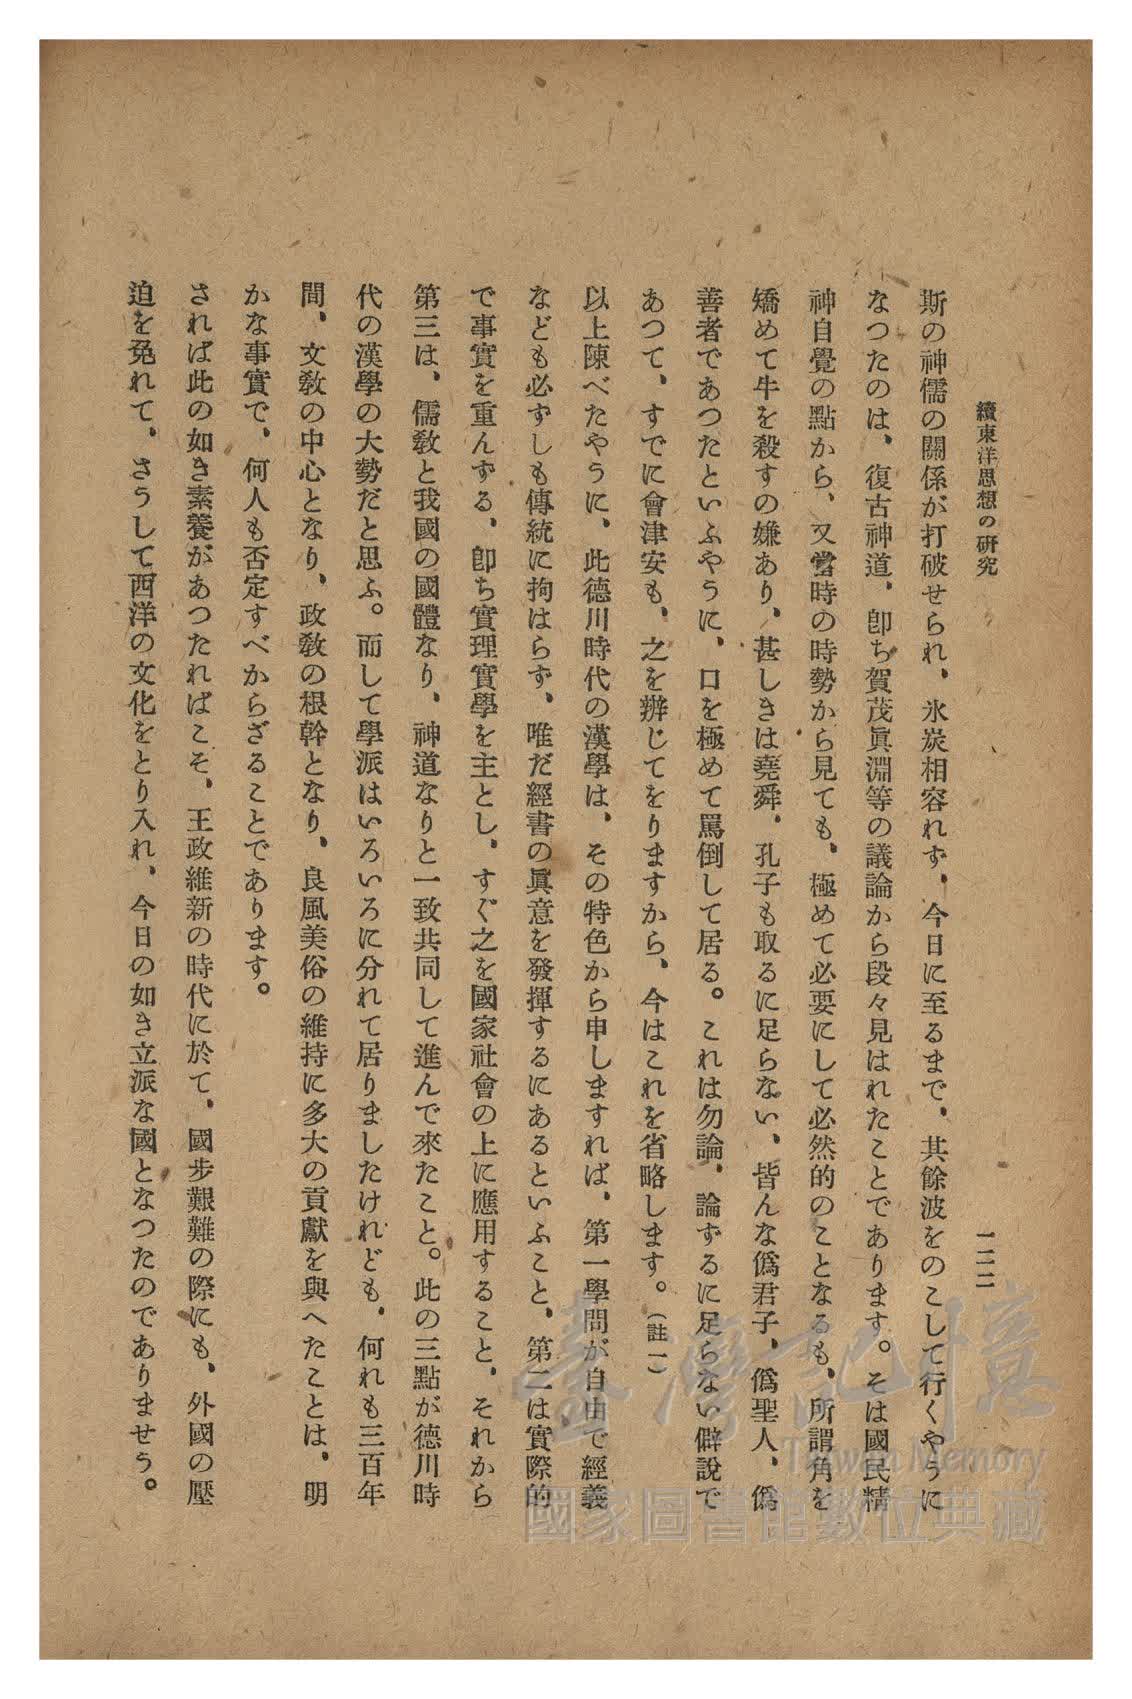 續東洋思想の硏究
一二二
斯の神儒の關係が打破せられ、氷炭相容れず、今日に至るまで、其餘波をのこして行くやうに
なつたのは、復古神道、卽ち賀茂眞淵等の議論から段々見はれたことであります。そは國民精
神自覺の點から、又當時の時勢から見ても、極めて必要にして必然的のことなるも、所謂角を
矯めて牛を殺すの嫌あり、甚しきは堯舜、孔子も取るに足らない、皆んな僞君子、僞聖人、僞
善者であつたといふやうに、口を極めて罵倒して居る。これは勿論、論ずるに足らない僻說で
あつて、すでに會津安も、之を辨じてをりますから、今はこれを省略します。（註一）
以上陳べたやうに、此德川時代の漢學は、その特色から申しますれば、第一學問が自由で經義
なども必ずしも傳統に拘はらず、唯だ經書の眞意を發揮するにあるといふこと、第二は實際的
で事實を重んずる、卽ち實理實學を主とし、すぐ之を國家社會の上に應用すること、それから
第三は、儒敎と我國の國體なり、神道なりと一致共同して進んで來たこと。此の三點が德川時
代の漢學の大勢だと思ふ。而して學派はいろいろに分れて居りましたけれども、何れも三百年
間、文敎の中心となり、政敎の根幹となり、良風美俗の維持に多大の貢獻を與へたことは、明
かな事實で、何人も否定すべからざることであります。
されば此の如き素養があつたればこそ、王政維新の時代に於て、國步艱難の際にも、外國の壓
迫を免れて、さうして西洋の文化をとり入れ、今日の如き立派な國となつたのでありませう。
臺灣記憶
Taiwan Memory
國家圖書館數位典藏